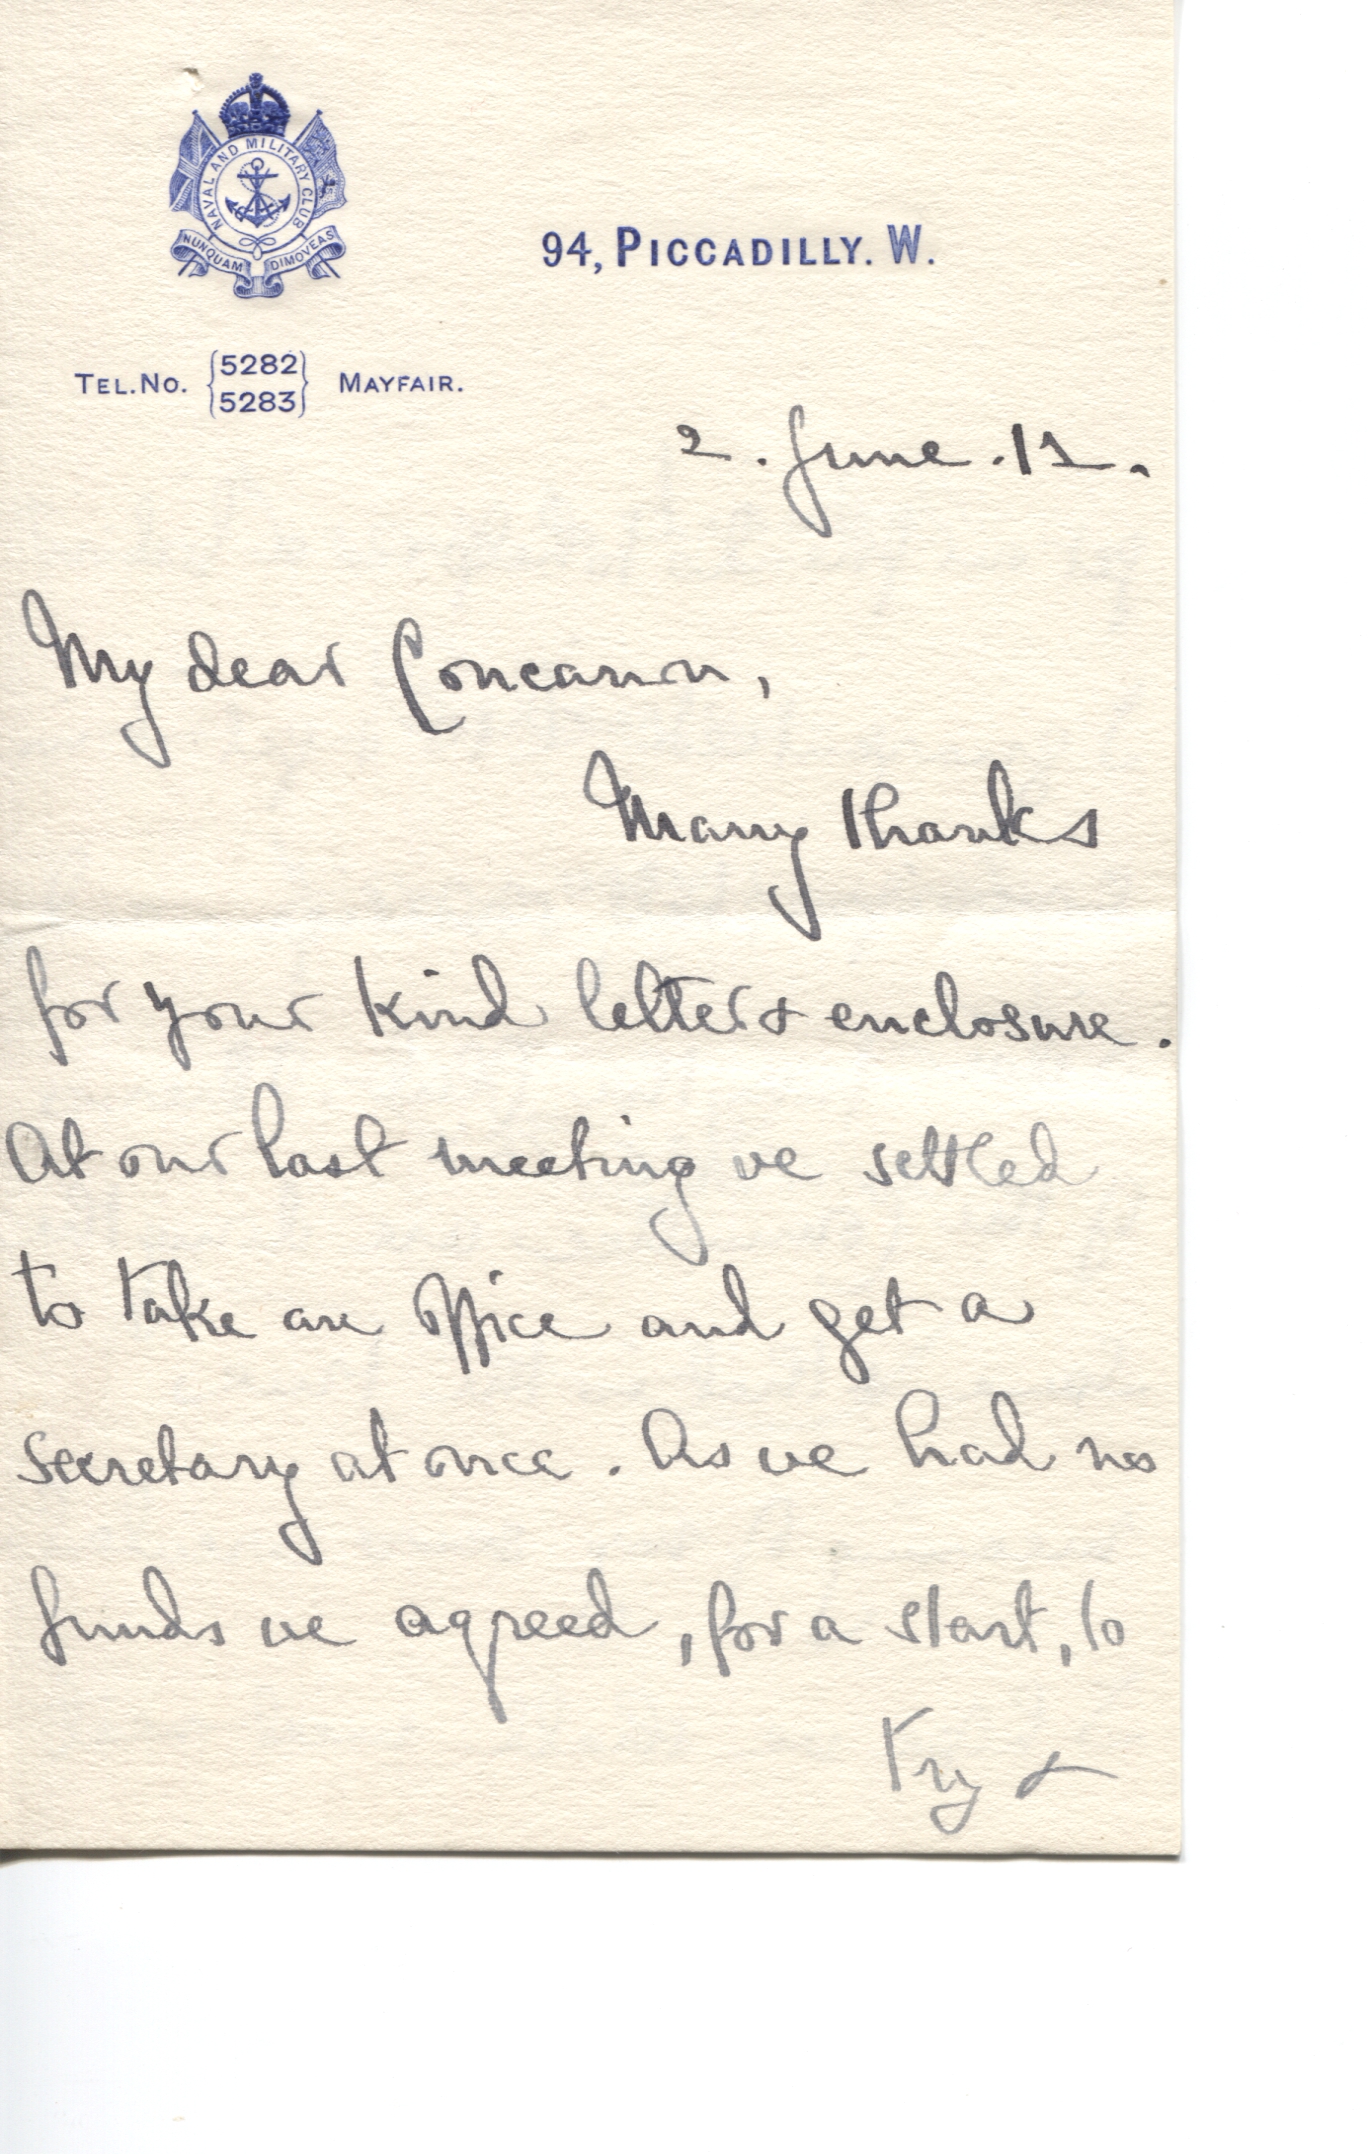 NAVAL AND MILITARY CLUB
NUNQUAM DIMOVEAS
94, PICCADILLY. W.
TEL. NO. {5282 5283} MAYFAIR.
2. June. 11.
My dear Concannon,
Many thanks
for your kind letter & enclosure.
At our last meeting we settled
to take an office and get a
secretary at once. As we had no
funds we agreed, for a start, to
try &